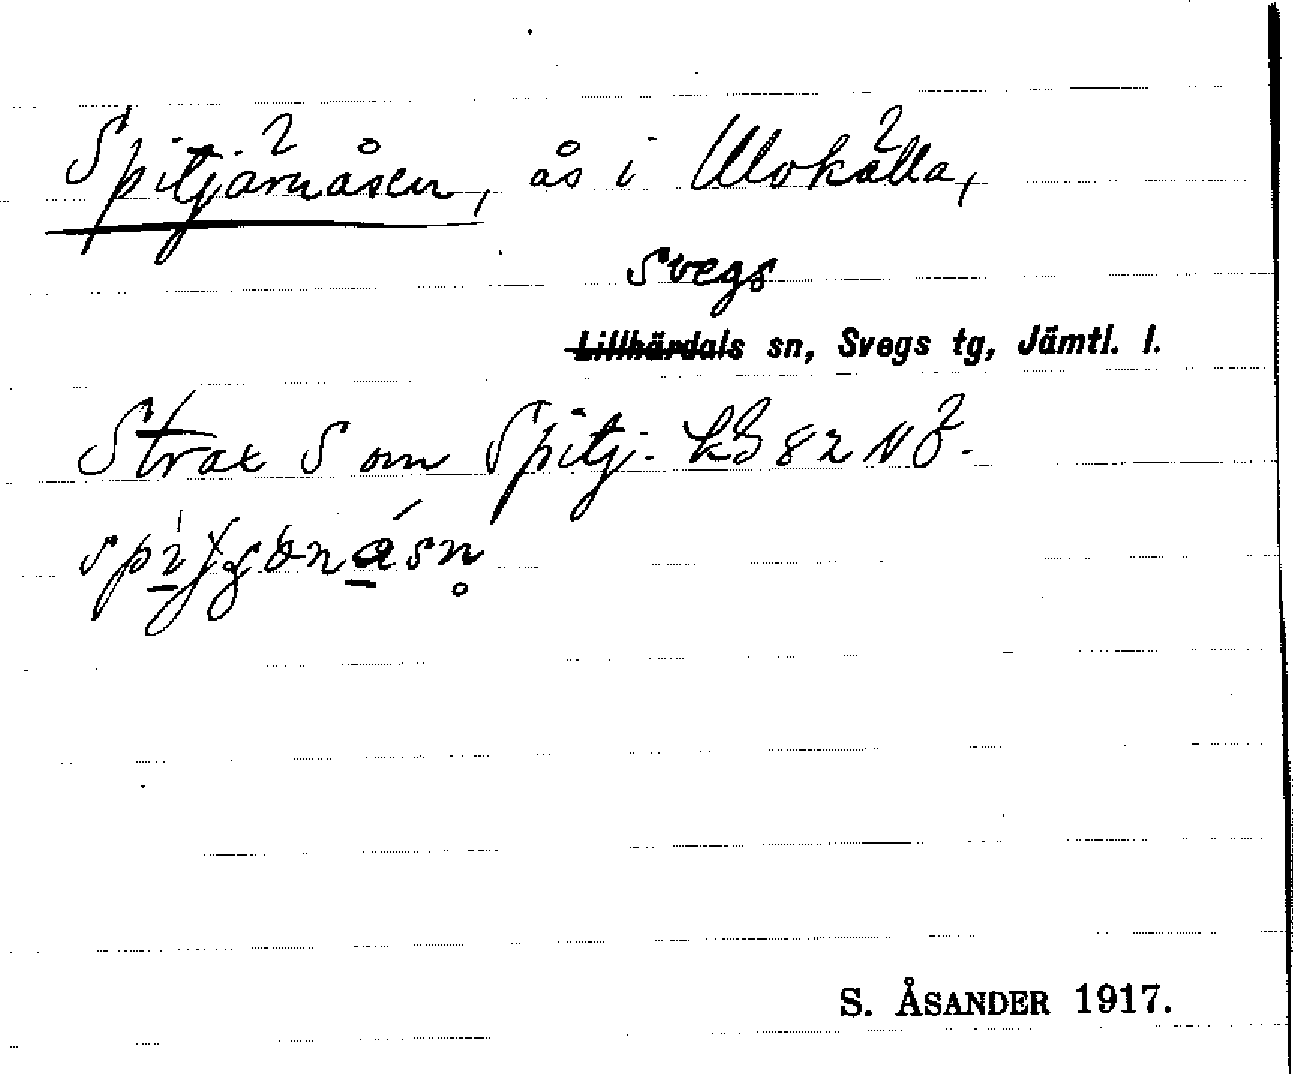 Spitjärnåsen, ås i Ulvkälla,
Svegs
Lillhärdals sn, Svegs tg, Jämtl. l.
Strax S om Spitj. kB 82 NÖ.
S. ÅSANDER 1917.